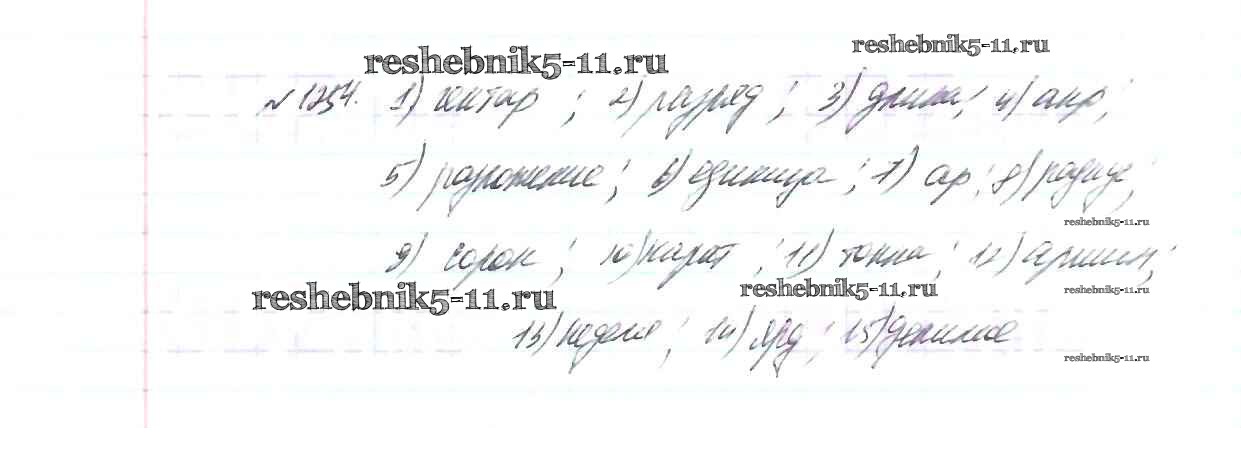 reshebnik5-11.ru
reshebnik5-11.ru
№1254. 1) гектар ; 2) разряд ; 3) длина; 4) акр;
5) разложение; 6) единица ; 7) ар; 8) радиус;
reshebnik5-11.ru
9) сорок ; 10) карат ; 11) тонна ; 12) аршин;
reshebnik5-11.ru
reshebnik5-11.ru
reshebnik5-11.ru
13) неделя ; 14) ярд ; 15) делимое
reshebnik5-11.ru